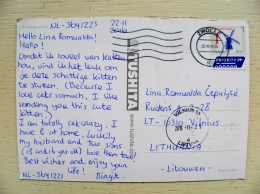 NL-3641223 22-11
Hello Lina Romualda!
Hallo!
Omdat ik zoveel van katten
hou, vind ik het leuk om
je deze schattige kitten
te sturen. (Because I
love cats so much, I like
sending you this cute
kitten.)
I am totally cat crazy. I
have 8 at home. Luckily
my husband and two sons
love them too.
Best wishes and enjoy your
life! Birgit.
NL-3641223
TUSHITA
ZWOLLE
PRIORITY
Lina Romualda Čepulytė
LT-10310 Vilnius
LITHUANIA
- Litouwen -
VILNIUS